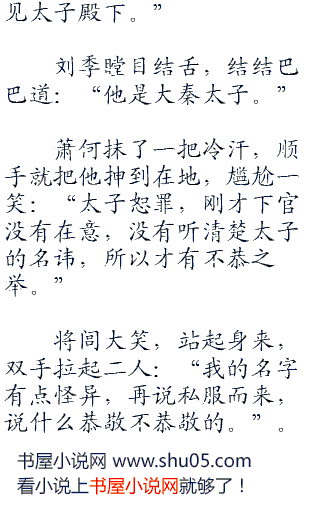 见太子殿下。”
刘季瞠目结舌，结结巴
巴道：“他是大秦太子。”
萧何抹了一把冷汗，顺
手就把他抻到在地，尴尬一
笑：“太子恕罪，刚才下官
没有在意，没有听清楚太子
的名讳，所以才有不恭之
举。”
将闾大笑，站起身来，
双手拉起二人：“我的名字
有点怪异，再说私服而来，
说什么恭敬不恭敬的。”。
书屋小说网 www.shu05.com
看小说上书屋小说网就够了！